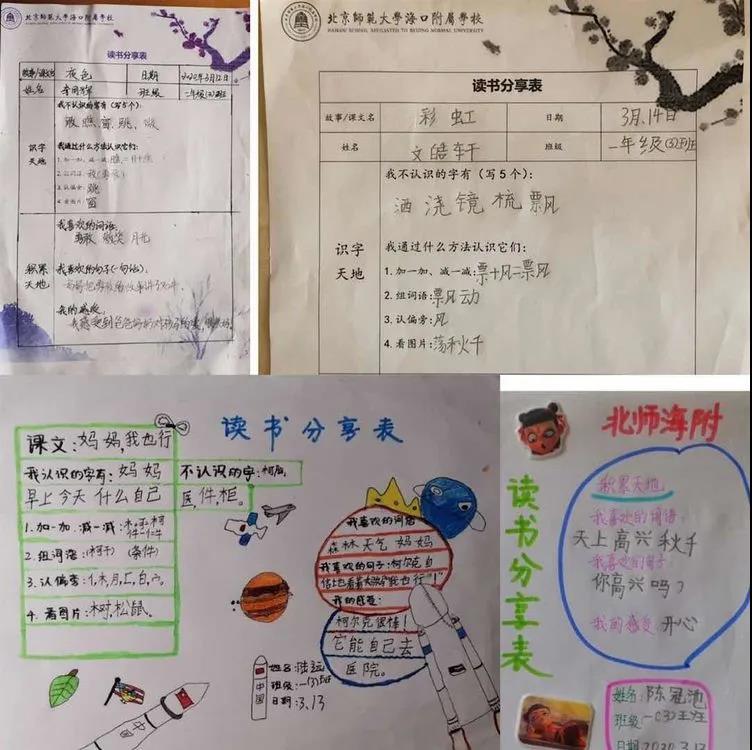 北京師範大學海口附屬學校
读书分享表
故事/课文名 夜色 日期 2020年3月12日
姓名 班级 一年级(3)班
我不认识的字有(写5个):
识字天地
我通过什么方法认识它们:
1.加一加、减一减:
2.组词语:
3.认偏旁:跳
4.看图片:窗
积累天地
我喜欢的词语:
勇敢 微笑 月光
我喜欢的句子(一句话):
我的感受:
北京師範大學海口附屬學校
HAIKOU SCHOOL AFFILIATED TO BEIJING NORMAL UNIVERSITY
读书分享表
故事/课文名 彩虹 日期 3月14日
姓名 文皓轩 班级 一年级(3)王班
我不认识的字有(写5个):
洒 浇 镜 梳 飘
识字天地
我通过什么方法认识它们:
1.加一加、减一减:票+风=飘
2.组词语:飘动
3.认偏旁:风
4.看图片:荡秋千
读书分享表
课文:妈妈,我也行
我认识的字有:妈妈
早上今天 什么自己
不认识的字:柯后,
医,件,柜。
1.加一加.减一减:
2.组词语:(柯干) (条件)
3.认偏旁:
4.看图片:树,松鼠。
我喜欢的词语
森林天气 妈妈
我喜欢的句子:柯尔克自
我的感受:
柯尔克很棒!
它能自己去
医院。
中国
姓名:陆远
班级:一(3)班
日期:3.13
北师海附
读书分享表
积累天地
我喜欢的词语:
天上高兴秋千
我喜欢的句子:
你高兴吗?
我的感受:开心
姓名:陈冠池
班级:一(3)王班
日期2020.3.12